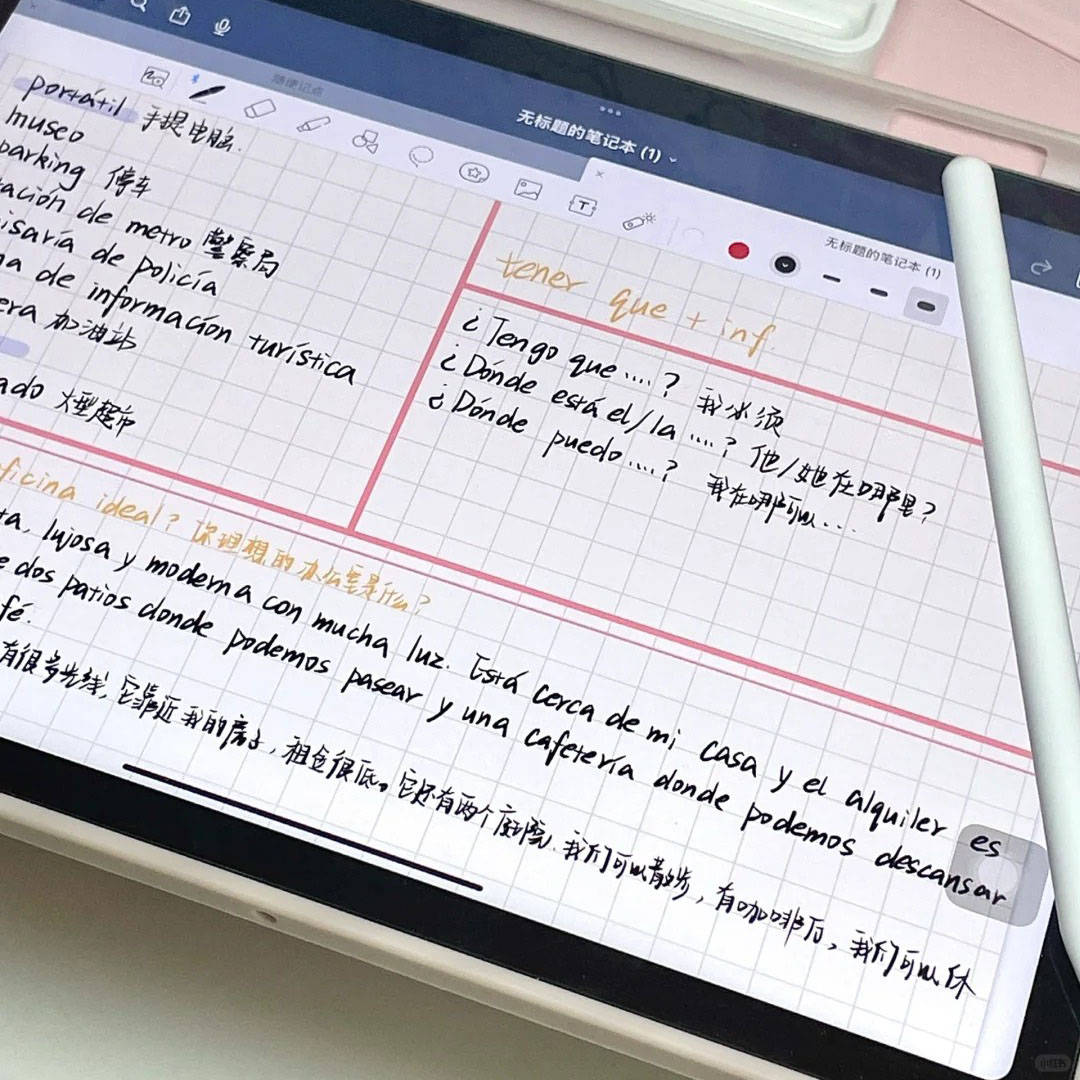 随便记点
无标题的笔记本 (1)
无标题的笔记本 (1)
portátil 手提电脑.
museo
parking 停车
ación de metro 警察局
isaría de policía
na de información turística
era 加油站
ado 大型超市
tener que + inf.
¿Tengo que....? 我必须
¿Dónde está el/la ....? 他/她在哪里?
¿Dónde puedo....? 我在哪可以...
oficina ideal? 你理想的办公室是什么?
ta, lujosa y moderna con mucha luz. Está cerca de mi casa y el alquiler es
e dos patios donde podemos pasear y una cafetería donde podemos descansar
fé.
有很多光线, 它靠近我的房子, 租金很低。它还有两个庭院, 我们可以散步, 有咖啡厅, 我们可以休
小红书